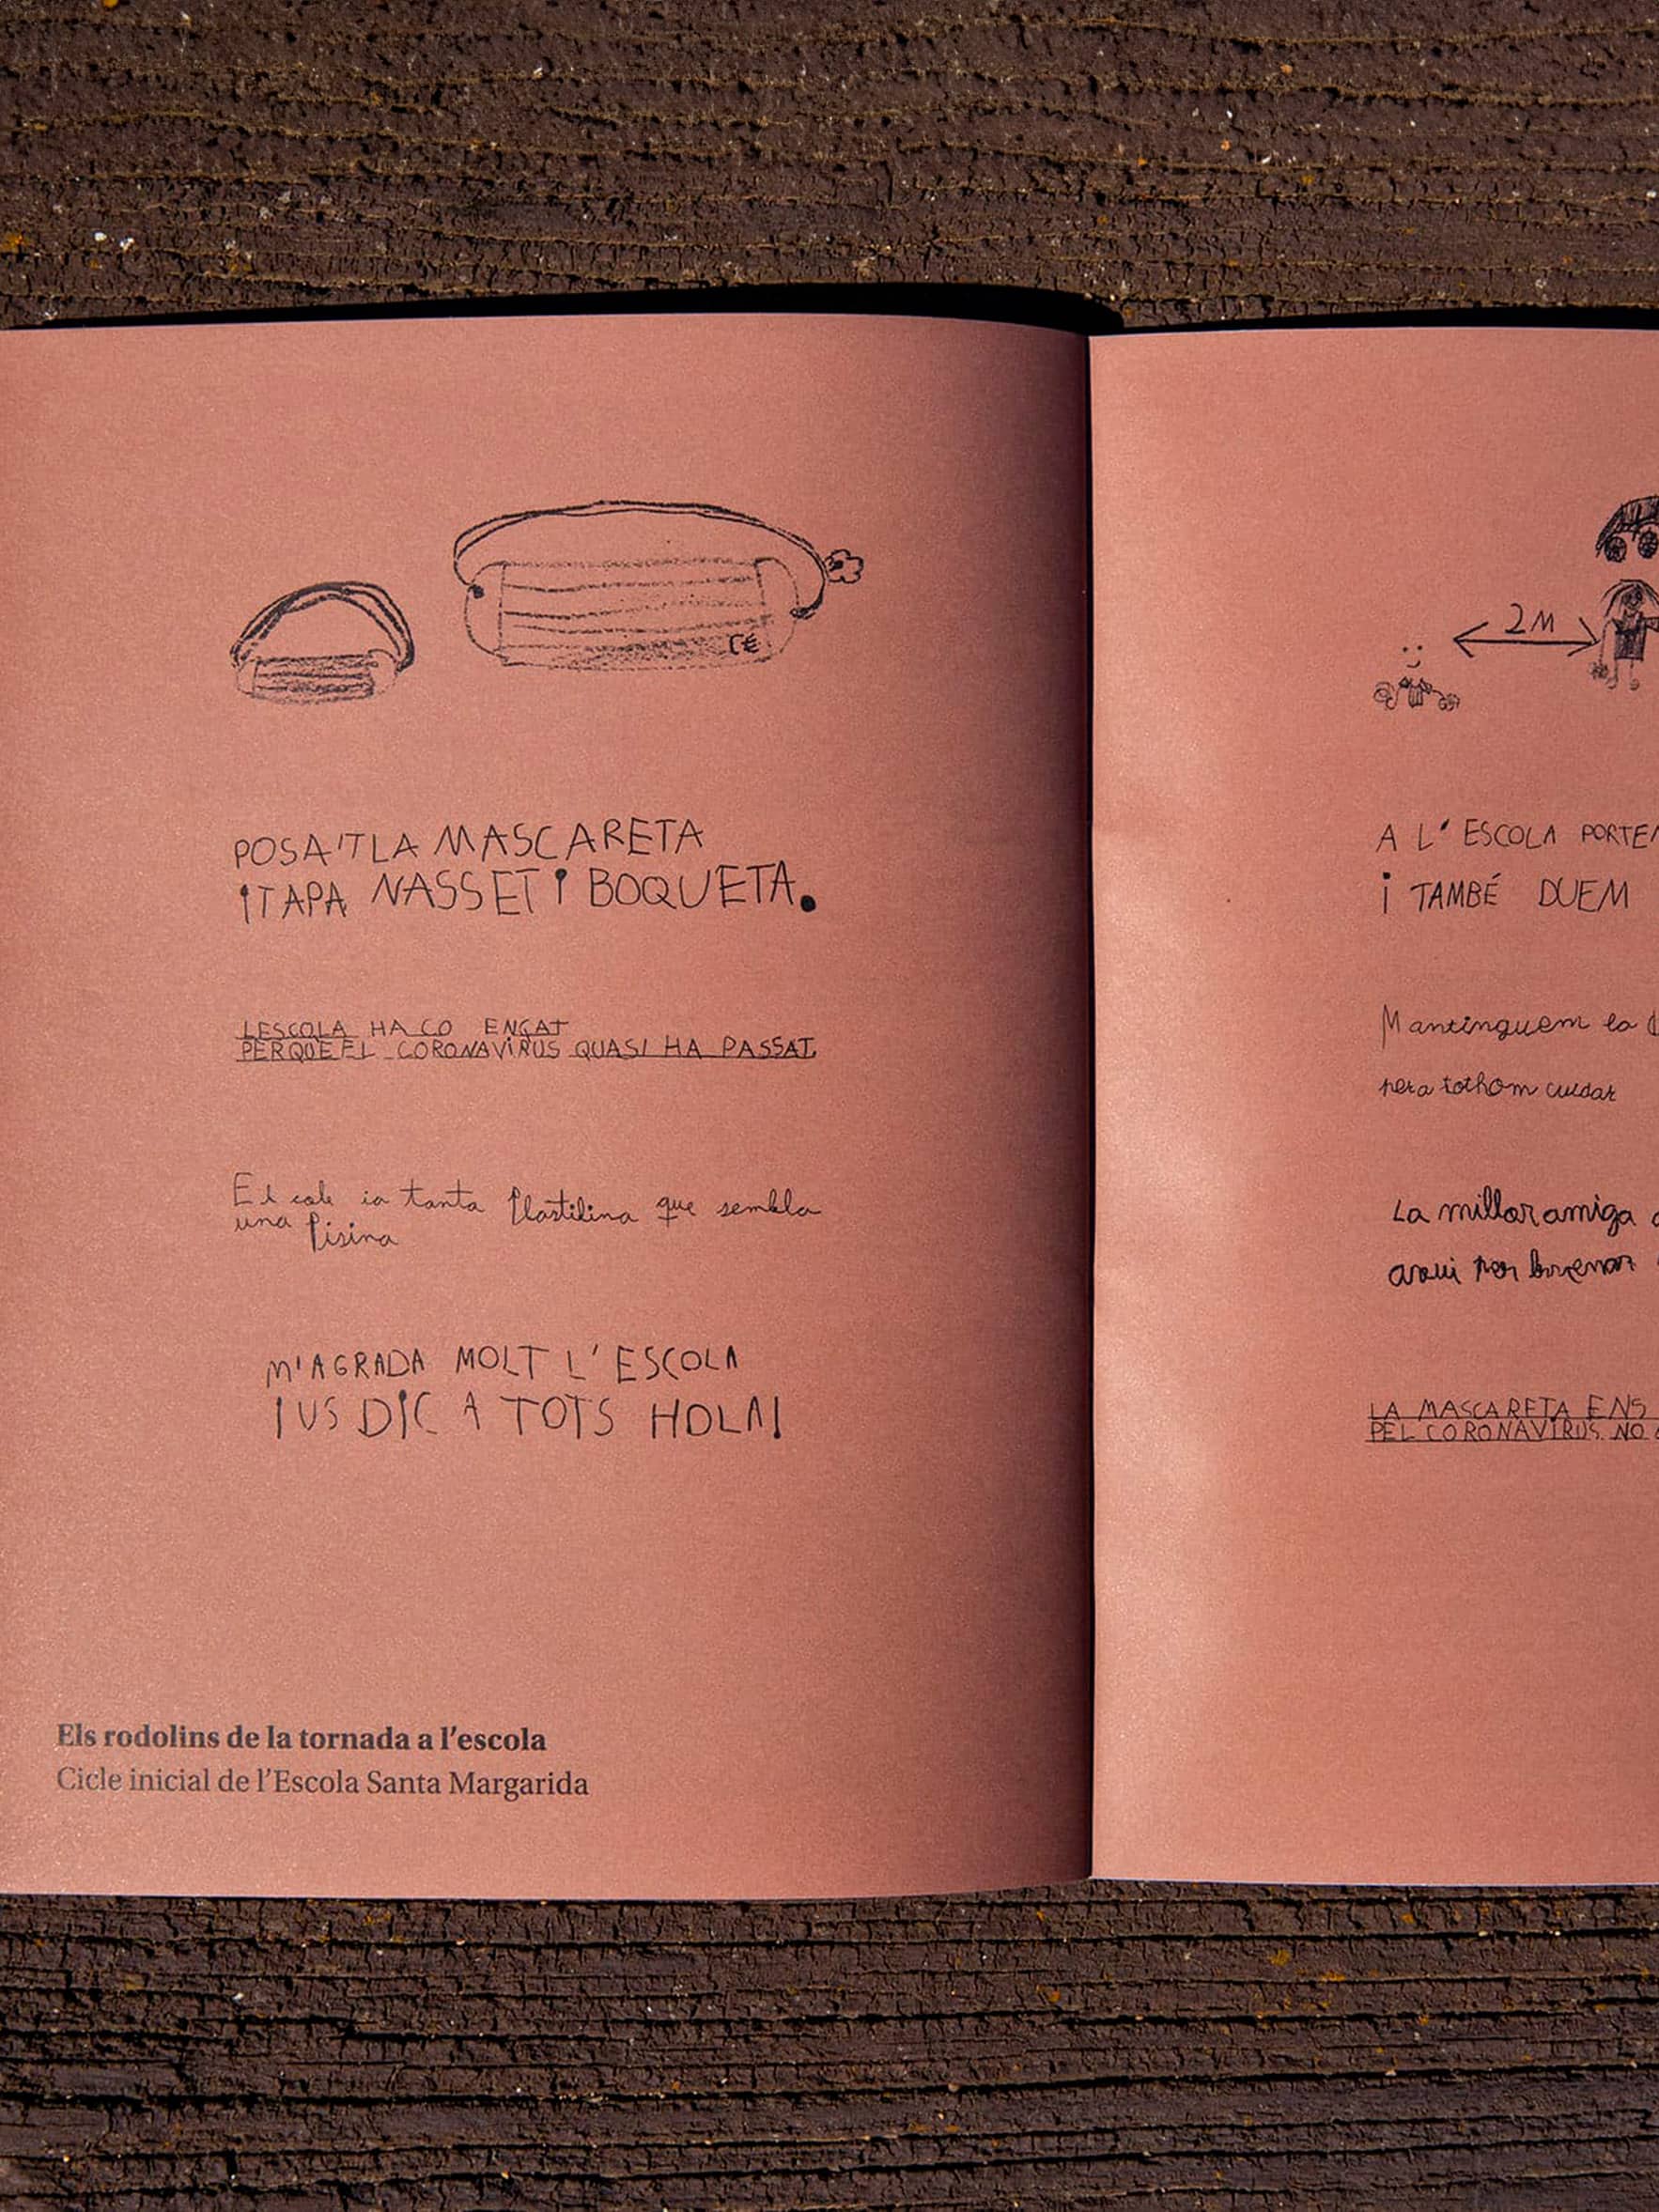 C€
POSA'TLA MASCARETA
I TAPA NASSET I BOQUETA.
LESCOLA HA CO ENÇAT
PERQUE EL CORONAVIRUS QUASI HA PASSAT.
El cole ia tanta Plastilina que sembla
una Pisina
M'AGRADA MOLT L'ESCOLA
I US DIC A TOTS HOLA!
Els rodolins de la tornada a l'escola
Cicle inicial de l'Escola Santa Margarida
2M
A L'ESCOLA PORTE
i TAMBÉ DUEM
Mantinguem la
pera tothom cuidar
La millor amiga
per
LA MASCARETA ENS
PEL CORONAVIRUS NO